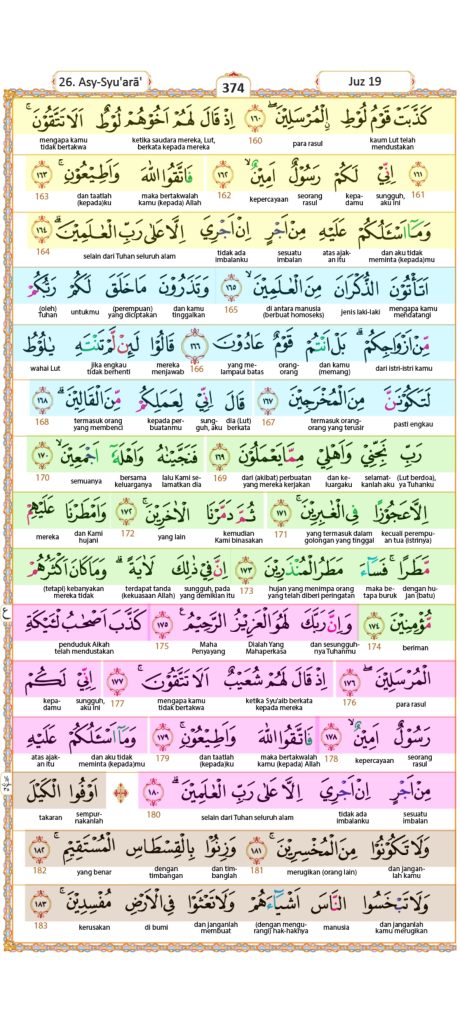 26. Asy-Syu'arā'
374
Juz 19
كَذَّبَتْ قَوْمُ لُوْطِ ࣙالْمُرْسَلِيْنَ ۖ ١٦٠ اِذْ قَالَ لَهُمْ اَخُوْهُمْ لُوْطٌ اَلَا تَتَّقُوْنَ ۚ
kaum Luth telah mendustakan para rasul 160 ketika saudara mereka, Lut, berkata kepada mereka mengapa kamu tidak bertakwa
١٦١ اِنِّيْ لَكُمْ رَسُوْلٌ اَمِيْنٌ ۙ ١٦٢ فَاتَّقُوا اللّٰهَ وَاَطِيْعُوْنِ ۚ ١٦٣
161 sungguh, aku ini kepa-damu seorang rasul kepercayaan 162 maka bertakwalah kamu (kepada) Allah dan taatlah (kepada)ku 163
وَمَآ اَسْـَٔلُكُمْ عَلَيْهِ مِنْ اَجْرٍ اِنْ اَجْرِيَ اِلَّا عَلٰى رَبِّ الْعٰلَمِيْنَ ۗ ١٦٤
dan aku tidak meminta (kepada)mu atas ajak-an itu sesuatu imbalan tidak ada imbalanku selain dari Tuhan seluruh alam 164
اَتَأْتُوْنَ الذُّكْرَانَ مِنَ الْعٰلَمِيْنَ ۙ ١٦٥ وَتَذَرُوْنَ مَا خَلَقَ لَكُمْ رَبُّكُمْ
mengapa kamu mendatangi jenis laki-laki di antara manusia (berbuat homoseks) 165 dan kamu tinggalkan (perempuan) yang diciptakan untukmu (oleh) Tuhan
مِّنْ اَزْوَاجِكُمْۗ بَلْ اَنْتُمْ قَوْمٌ عَادُوْنَ ١٦٦ قَالُوْا لَىِٕنْ لَّمْ تَنْتَهِ يٰلُوْطُ
dari istri-istri kamu dan kamu (memang) orang-orang yang me-lampaui batas 166 mereka menjawab jika engkau tidak berhenti wahai Lut
لَتَكُوْنَنَّ مِنَ الْمُخْرَجِيْنَ ١٦٧ قَالَ اِنِّيْ لِعَمَلِكُمْ مِّنَ الْقَالِيْنَ ۗ ١٦٨
pasti engkau termasuk orang-orang yang terusir 167 dia (Lut) berkata sung-guh, aku kepada per-buatanmu termasuk orang yang membenci 168
رَبِّ نَجِّنِيْ وَاَهْلِيْ مِمَّا يَعْمَلُوْنَ ١٦٩ فَنَجَّيْنٰهُ وَاَهْلَهٗٓ اَجْمَعِيْنَ ۙ ١٧٠
(Lut berdoa), ya Tuhanku selamat-kanlah aku dan ke-luargaku dari (akibat) perbuatan yang mereka kerjakan 169 lalu Kami se-lamatkan dia bersama keluarganya semuanya 170
اِلَّا عَجُوْزًا فِى الْغٰبِرِيْنَ ۚ ١٧١ ثُمَّ دَمَّرْنَا الْاٰخَرِيْنَ ۚ ١٧٢ وَاَمْطَرْنَا عَلَيْهِمْ
kecuali perempu-an tua (istrinya) yang termasuk dalam golongan yang tinggal 171 kemudian Kami binasakan yang lain 172 dan Kami hujani mereka
مَّطَرًاۚ فَسَاۤءَ مَطَرُ الْمُنْذَرِيْنَ ١٧٣ اِنَّ فِيْ ذٰلِكَ لَاٰيَةً ۗ وَمَا كَانَ اَكْثَرُهُمْ
dengan hu-jan (batu) maka be-tapa buruk hujan yang menimpa orang yang telah diberi peringatan 173 sungguh, pada yang demikian itu terdapat tanda (kekuasaan Allah) (tetapi) kebanyakan mereka tidak
ع
مُّؤْمِنِيْنَ ١٧٤ وَاِنَّ رَبَّكَ لَهُوَ الْعَزِيْزُ الرَّحِيْمُ ࣖ ١٧٥ كَذَّبَ اَصْحٰبُ لْـَٔيْكَةِ
beriman 174 dan sesungguh-nya Tuhanmu Dialah Yang Mahaperkasa Maha Penyayang 175 penduduk Aikah telah mendustakan
الْمُرْسَلِيْنَ ۖ ١٧٦ اِذْ قَالَ لَهُمْ شُعَيْبٌ اَلَا تَتَّقُوْنَ ۚ ١٧٧ اِنِّيْ لَكُمْ
para rasul 176 ketika Syu'aib berkata kepada mereka mengapa kamu tidak bertakwa 177 sungguh, aku ini kepa-damu
رَسُوْلٌ اَمِيْنٌ ۙ ١٧٨ فَاتَّقُوا اللّٰهَ وَاَطِيْعُوْنِ ۚ ١٧٩ وَمَآ اَسْـَٔلُكُمْ عَلَيْهِ
seorang rasul kepercayaan 178 maka bertakwalah kamu (kepada) Allah dan taatlah (kepada)ku 179 dan aku tidak meminta (kepada)mu atas ajak-an itu
مِنْ اَجْرٍ اِنْ اَجْرِيَ اِلَّا عَلٰى رَبِّ الْعٰلَمِيْنَ ۗ ١٨٠ ۞ اَوْفُوا الْكَيْلَ
sesuatu imbalan tidak ada imbalanku selain dari Tuhan seluruh alam 180 sempur-nakanlah takaran
وَلَا تَكُوْنُوْا مِنَ الْمُخْسِرِيْنَ ۚ ١٨١ وَزِنُوْا بِالْقِسْطَاسِ الْمُسْتَقِيْمِ ۚ ١٨٢
dan jangan-lah kamu merugikan (orang lain) 181 dan tim-banglah dengan timbangan yang benar 182
وَلَا تَبْخَسُوا النَّاسَ اَشْيَاۤءَهُمْ وَلَا تَعْثَوْا فِى الْاَرْضِ مُفْسِدِيْنَ ۚ ١٨٣
dan janganlah kamu merugikan manusia (dengan mengu-rangi) hak-haknya dan janganlah membuat di bumi kerusakan 183